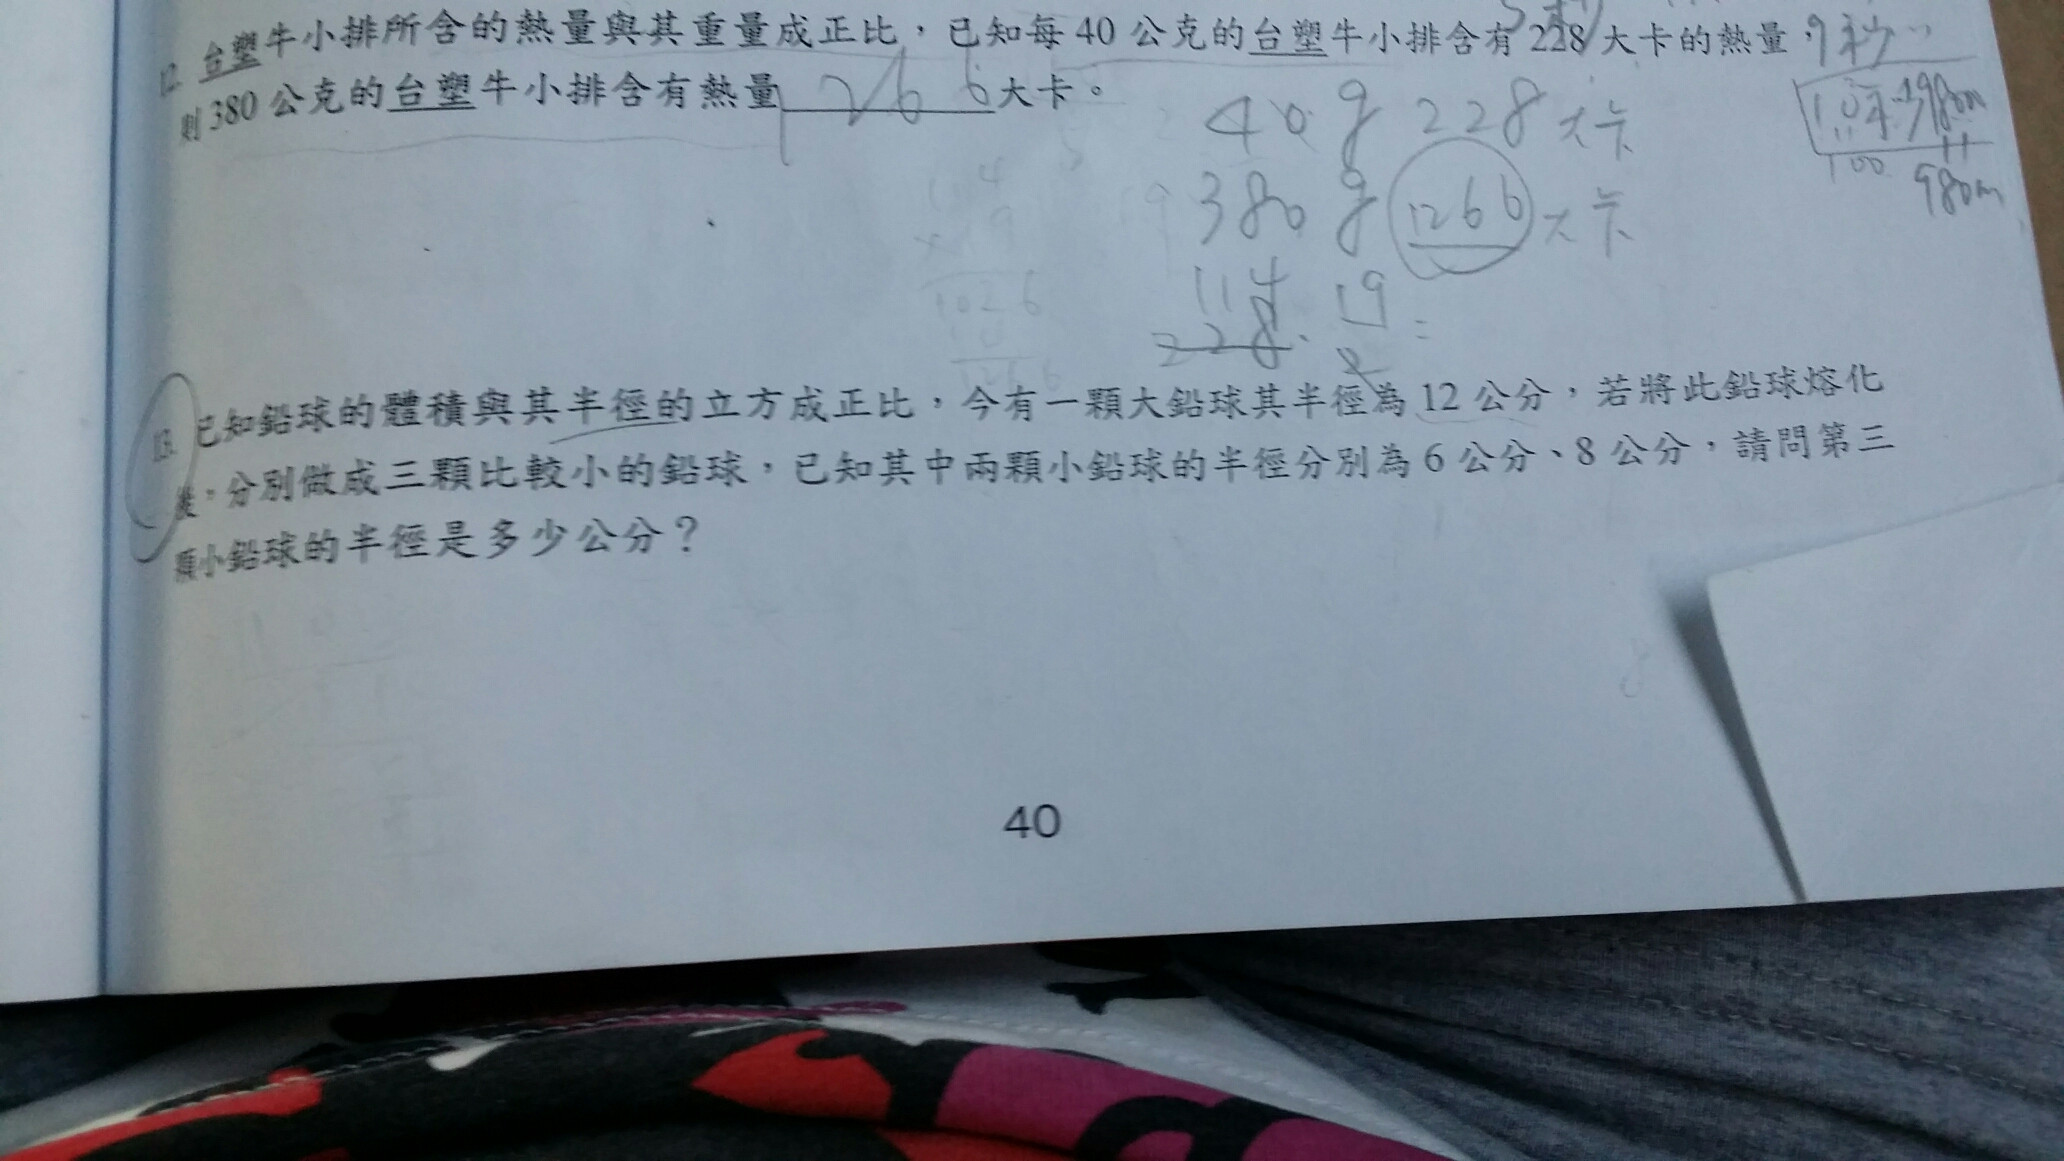 12. 台塑牛小排所含的熱量與其重量成正比,已知每 40 公克的台塑牛小排含有 228 大卡的熱量,
則 380 公克的台塑牛小排含有熱量 1266 大卡。
9秒
980m
100
980m
40g 228大卡
380g 1266大卡
114 19
228 · 2 =
4
× 9
1026
13. 已知鉛球的體積與其半徑的立方成正比,今有一顆大鉛球其半徑為 12 公分,若將此鉛球熔化
後,分別做成三顆比較小的鉛球,已知其中兩顆小鉛球的半徑分別為 6 公分、8 公分,請問第三
顆小鉛球的半徑是多少公分?
40